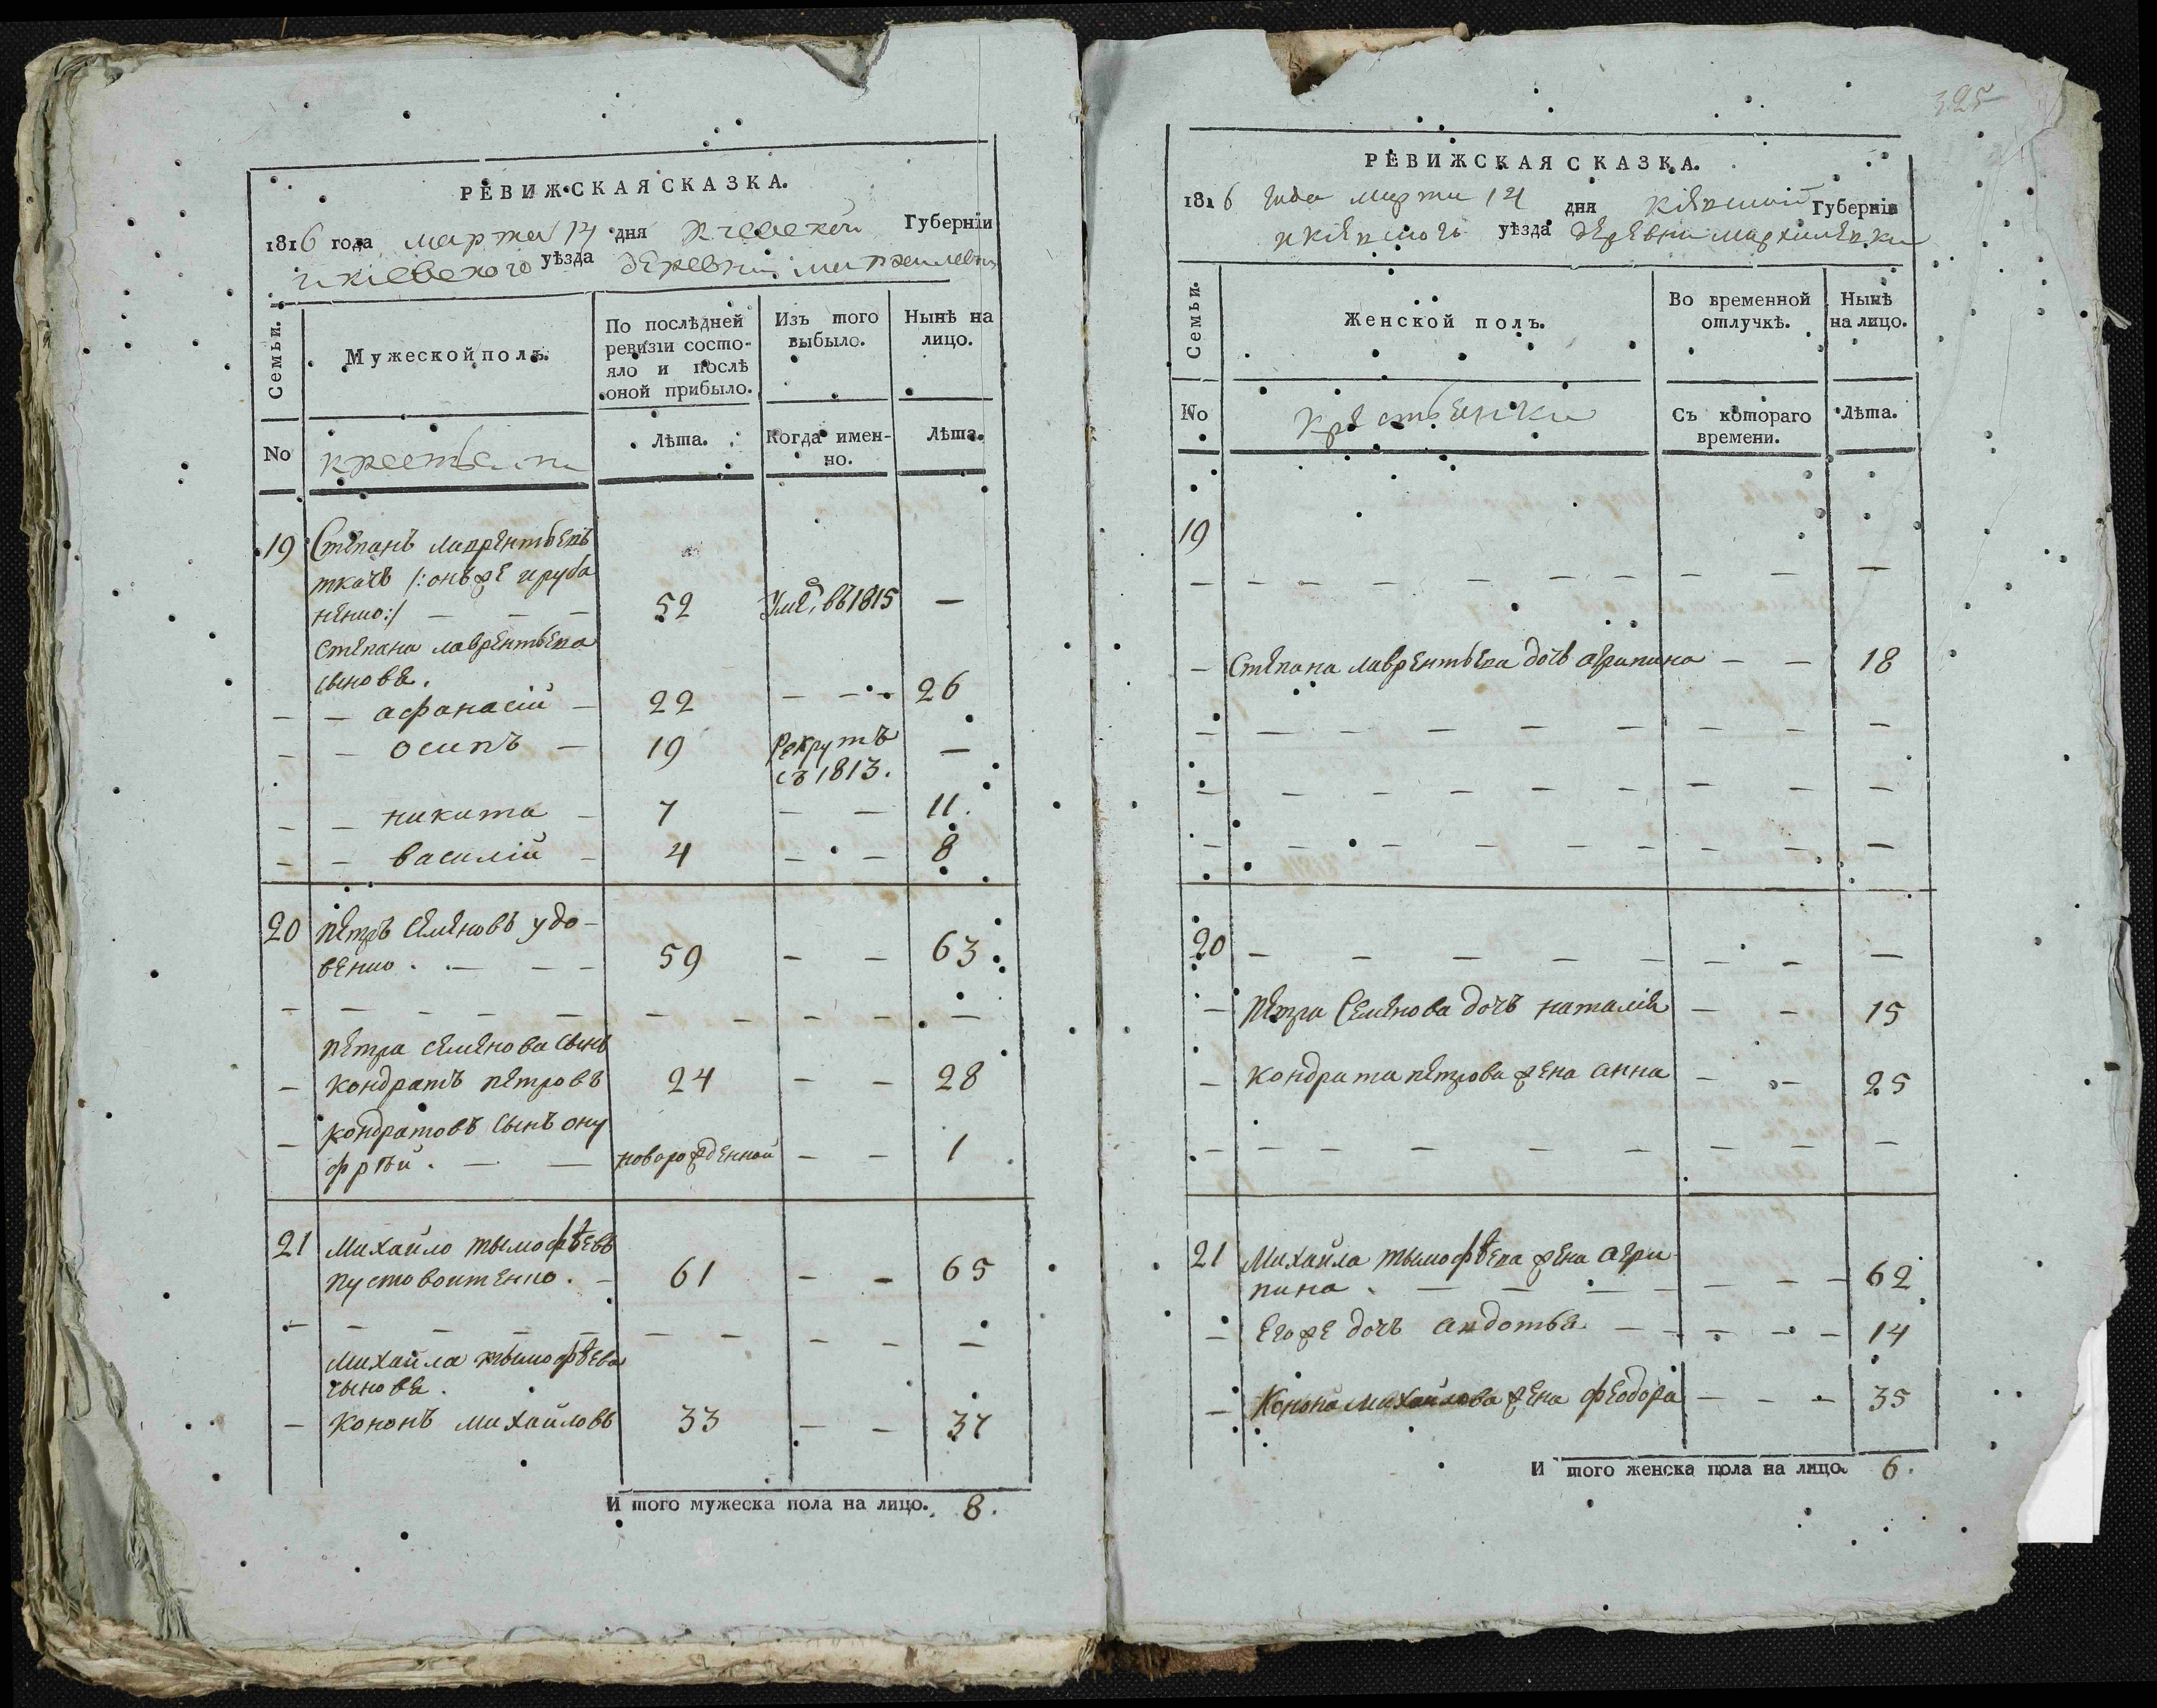 РЕВИЖСКАЯ СКАЗКА.
1816 года марта 14 дня Киевской Губерніи
и киевского уѣзда деревни мархалевки
Семьи.
Мужеской полъ.
По послѣдней ревизіи состо-
яло и послѣ
оной прибыло.
Изъ того
выбыло.
Нынѣ на
лицо.
No
крестьяни
Лѣта.
Когда имен-
но.
Лѣта.
19 Степанъ лаврентьевъ
ткачъ /: онъ же и руба
ненко :/ — — — 52 Уме, въ 1815 —
Степана лаврентьева
сыновя.
— — афанасій — 22 — — 26
— — осипъ — 19 Рекрутъ —
съ 1813.
— — никита — 7 — — 11.
— — василій — 4 — — 8
20 петръ семеновъ удо-
венко . — — — 59 — — 63
петра семенова сынъ
— кондратъ петровъ 24 — — 28
— кондратовъ сынъ ону
фрѣй . — — новорожденной — — 1
21 Михайло тымофѣевъ
пустовоитенко . — 61 — — 65
Михайла тымофѣева
сыновя .
— кононъ михайловъ 33 — — 37
И того мужеска пола на лицо. 8.
325
РЕВИЖСКАЯ СКАЗКА.
1816 года марта 14 дня кіевской Губерніи
и кіевского уѣзда деревни мархалевки
Семьи.
Женской полъ.
Во временной
отлучкѣ.
Нынѣ
на лицо.
No
крестьянки
Съ котораго
времени.
Лѣта.
19
— Степана лаврентьева дочъ агрипина — — 18
20 — — — — — — — —
— Петра Семенова дочъ наталія — — 15
— кондрата петрова жена анна — — 25
21 Михайла тымофѣева жена агри
пина . — — — — — — — 62
— его же дочъ авдотья — — — — — 14
— Конона михайлова жена феодора — — — 35
И того женска пола на лицо. 6.